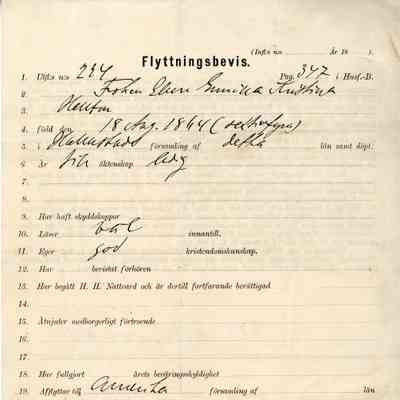 (Infl:s n:o År 18 ).
Flyttningsbevis.
1. Utfl:s n:o 234 Pag. 347 i Husf.-B.
2. Fröken Ebba Gunilla Kristina
3.
4. född den 18 Aug. 1864 (
5. i Halmstads församling af detta län samt döpt.
6. Är äktenskap. ledig
7.
8.
9. Har haft skyddskoppor
10. Läser väl innantill.
11. Eger god kristendomskunskap.
12. Har bevistat förhören
13. Har begått H. H. Nattvard och är dertill fortfarande berättigad
14.
15. Åtnjuter medborgerligt förtroende
16.
17.
18. Har fullgjort årets beväringsskyldighet
19. Afflyttar till Amerika församling af län